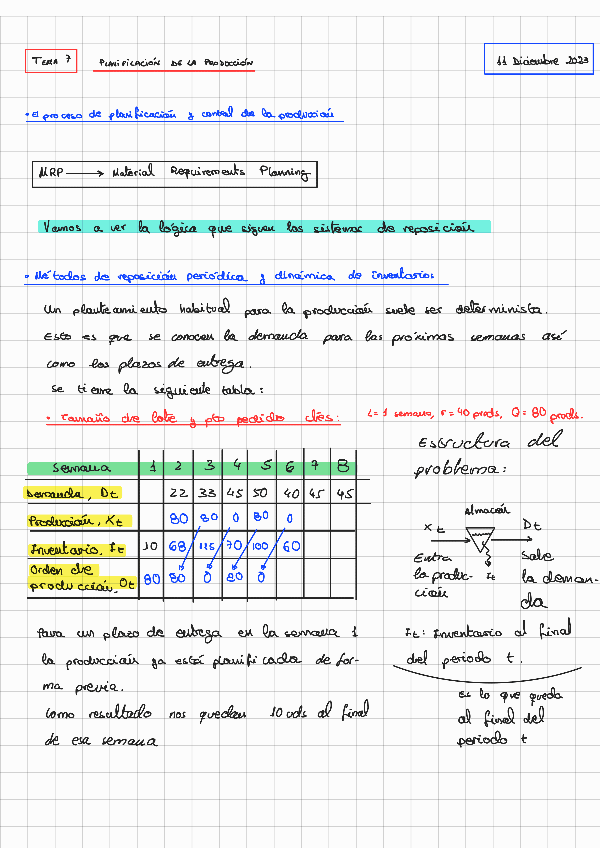 TEMA 7
PLANIFICACIÓN DE LA PRODUCCIÓN
11 Diciembre 2023
• El proceso de planificación y control de la producción
MRP → Material Requirements Planning
Vamos a ver la lógica que siguen los sistemas de reposición
• Métodos de reposición periódica y dinámica de inventarios
Un planteamiento habitual para la producción suele ser determinista.
Esto es que se conocen la demanda para las próximas semanas así
como los plazos de entrega.
Se tiene la siguiente tabla:
• Tamaño de lote y pto pedido ctes:
L=1 semana, r=40 prods, Q=80 prods.
Semana 1 2 3 4 5 6 7 8
Demanda, Dt 22 33 45 50 40 45 45
Producción, Xt 80 80 0 80 0
Inventario, It 10 68 115 70 100 60
Orden de
producción, Ot 80 80 0 80 0
Estructura del
problema:
Almacén
Xt
Dt
Entra
la produc-
ción
It
Sale
la deman-
da
Para un plazo de entrega en la semana 1
la producción ya está planificada de for-
ma previa.
Como resultado nos quedan 10 uds al final
de esa semana
It: Inventario al final
del periodo t.
es lo que queda
al final del
periodo t